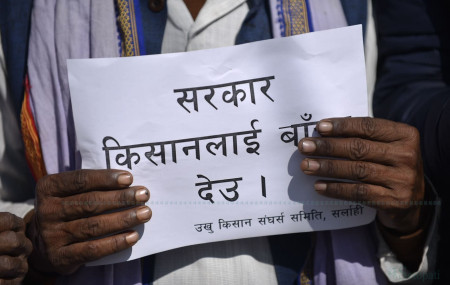 सरकार
किसानलाई बाँ
देउ ।
उखु किसान संघर्स समिति, सर्लाही